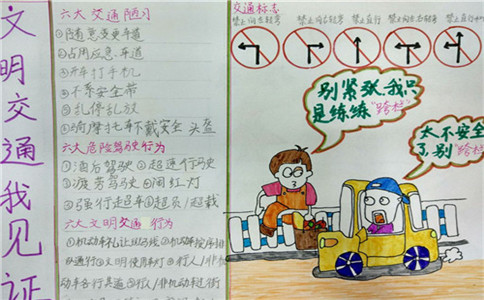 文明交通我见证
六大交通陋习
①随意变更车道
②占用应急车道
③开车打手机
④不系安全带
⑤乱停乱放
⑥骑摩托车不戴安全头盔
六大危险驾驶行为
①酒后驾驶②超速行驶
③疲劳驾驶④闯红灯
⑤强行超车⑥超员/超载
六大文明交通行为
①机动车礼让斑马线②机动车按序排
③文明使用车灯④行人/非机
动车各行其道⑤行人/非机动车过街
交通标志
禁止向左转弯
禁止向右转弯
禁止直行
别紧张,我只
是练练"跨栏"
太不安全
了,别"跨栏"